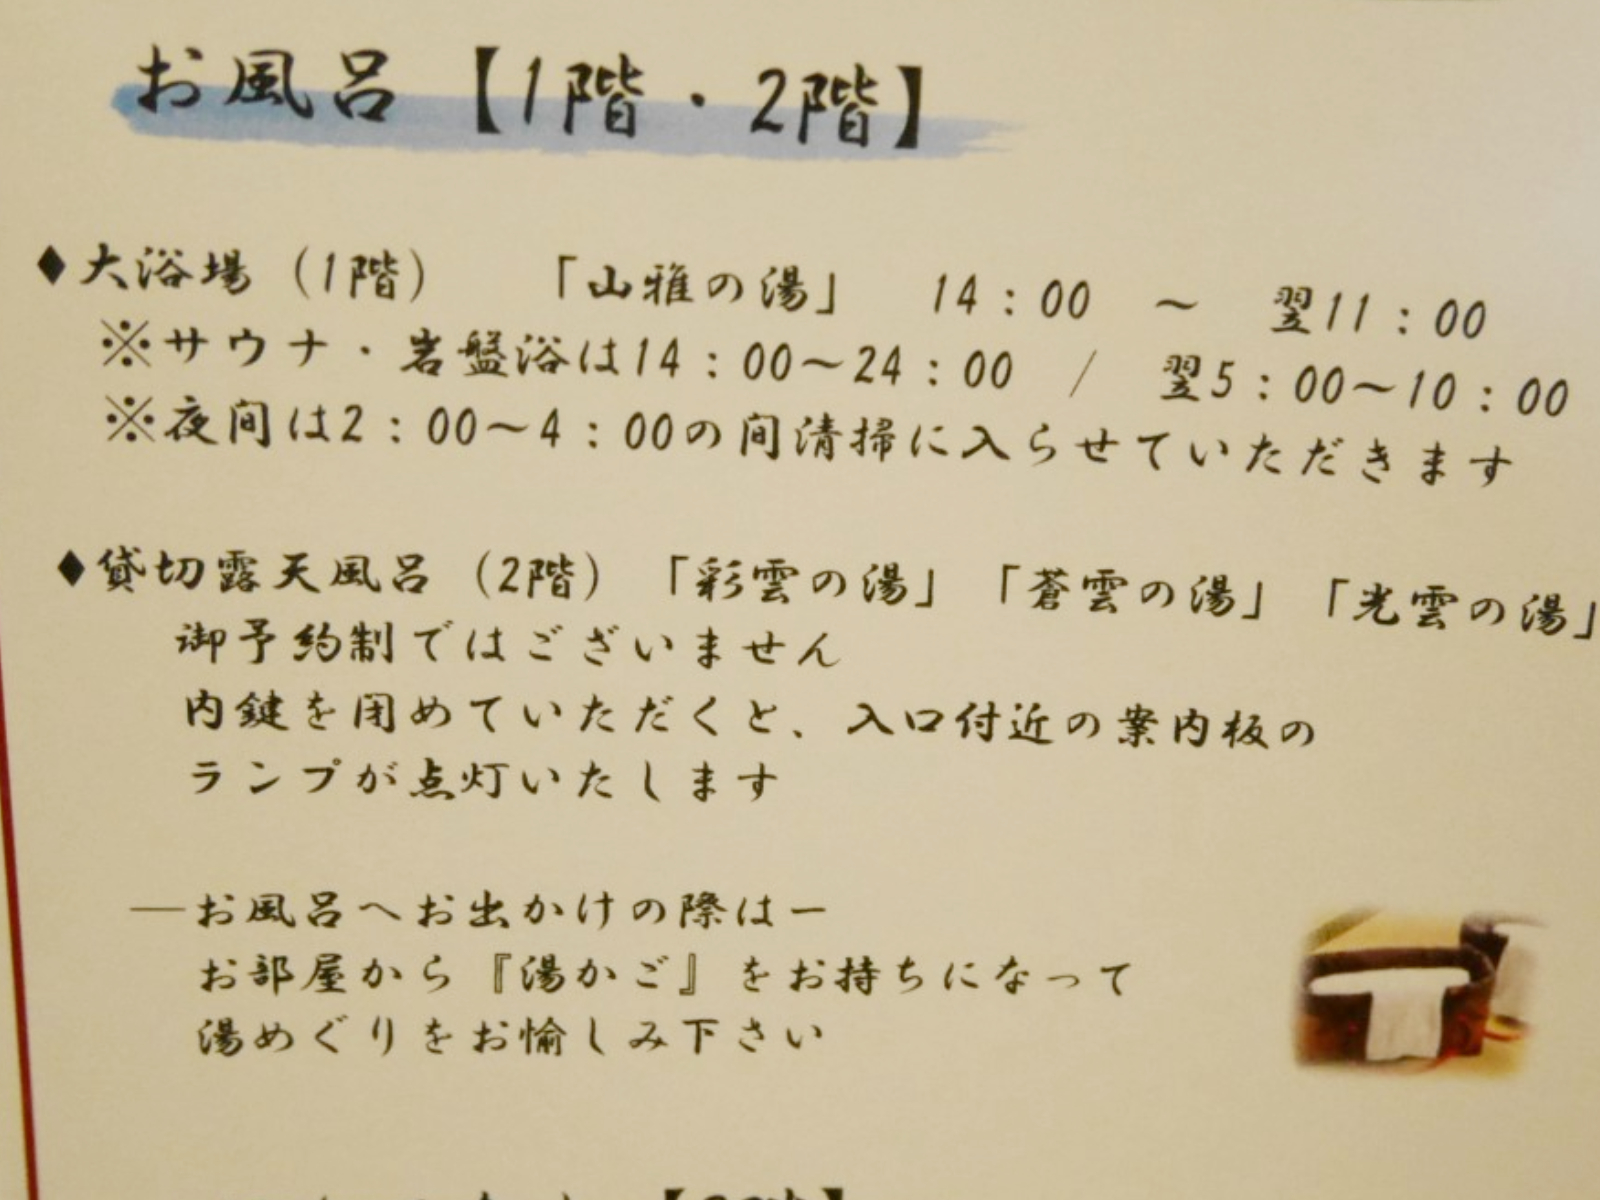 お風呂【1階・2階】
◆大浴場(1階) 「山雅の湯」 14:00 ～ 翌11:00
※サウナ・岩盤浴は14:00～24:00 / 翌5:00～10:00
※夜間は2:00～4:00の間清掃に入らせていただきます
◆貸切露天風呂(2階)「彩雲の湯」「蒼雲の湯」「光雲の湯」
御予約制ではございません
内鍵を閉めていただくと、入口付近の案内板の
ランプが点灯いたします
―お風呂へお出かけの際はー
お部屋から『湯かご』をお持ちになって
湯めぐりをお愉しみ下さい